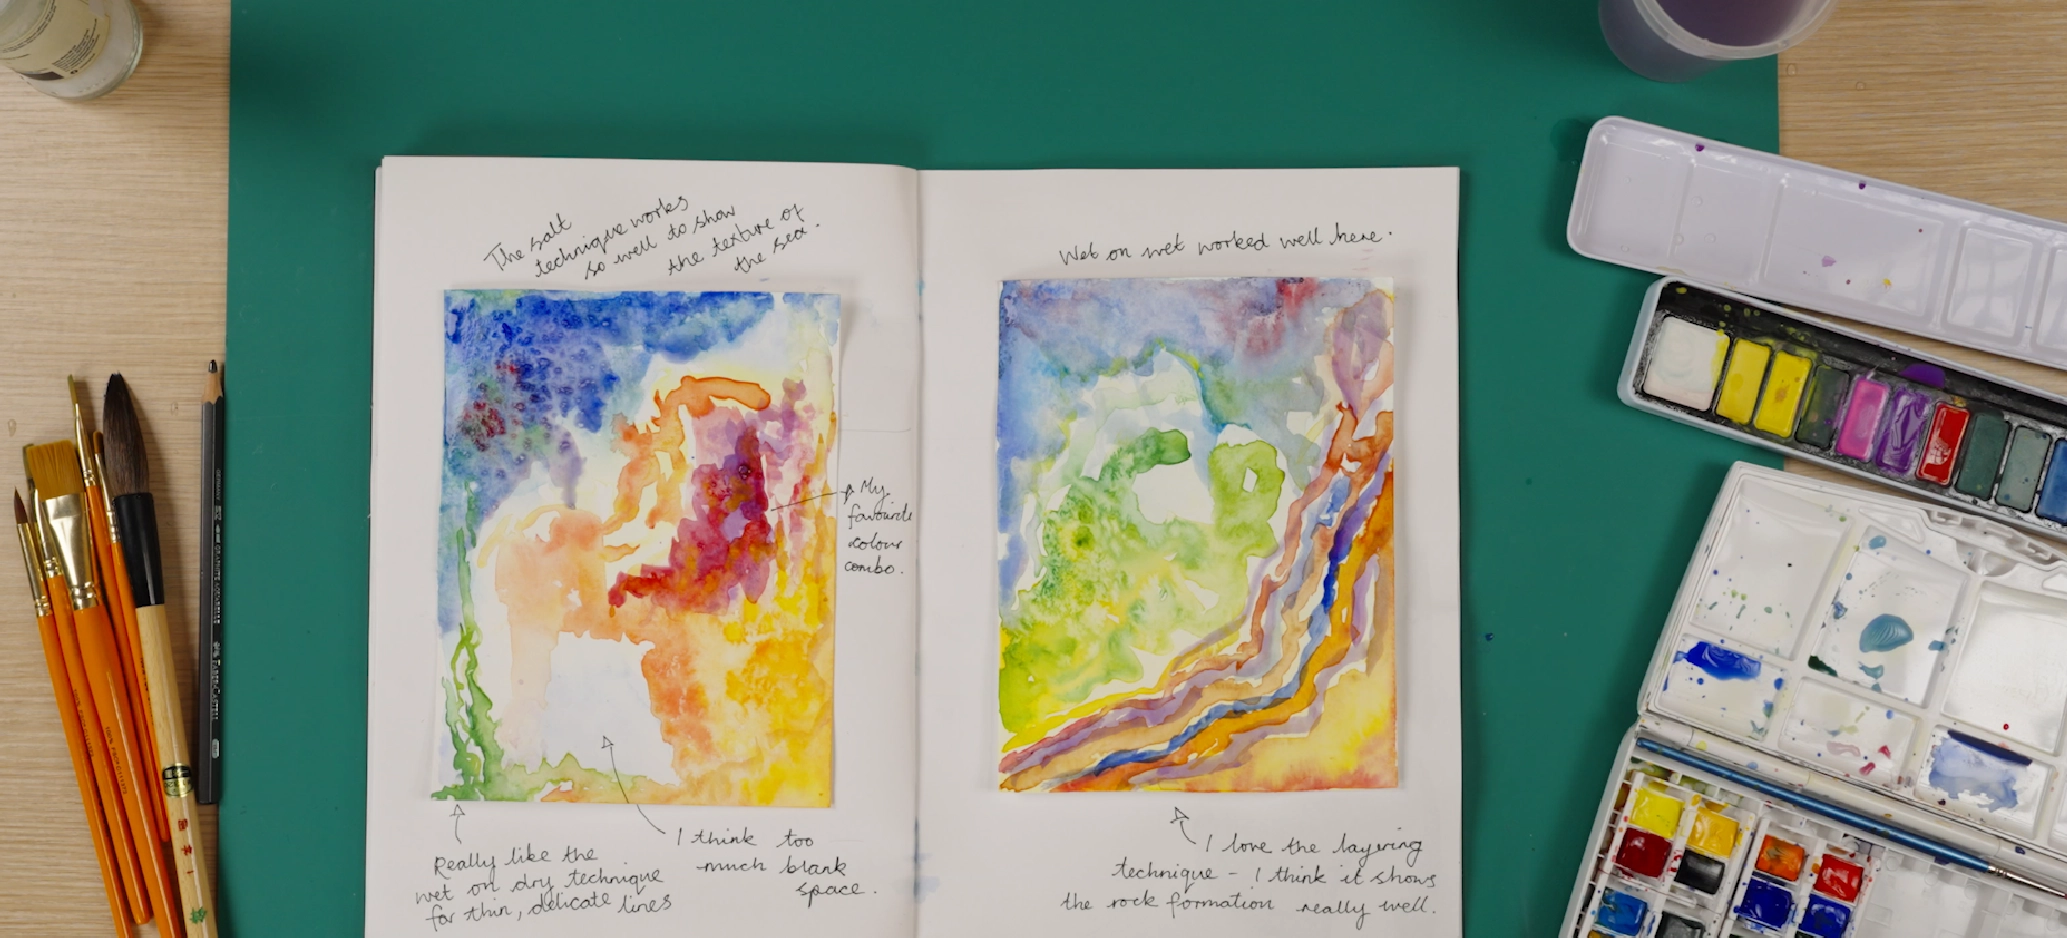 The salt
technique works
so well to show
the texture of
the sea.
My
favourite
colour
combo.
Really like the
wet on dry technique
for thin, delicate lines
I think too
much blank
space.
Wet on wet worked well here.
I love the layering
technique - I think it shows
the rock formation really well.